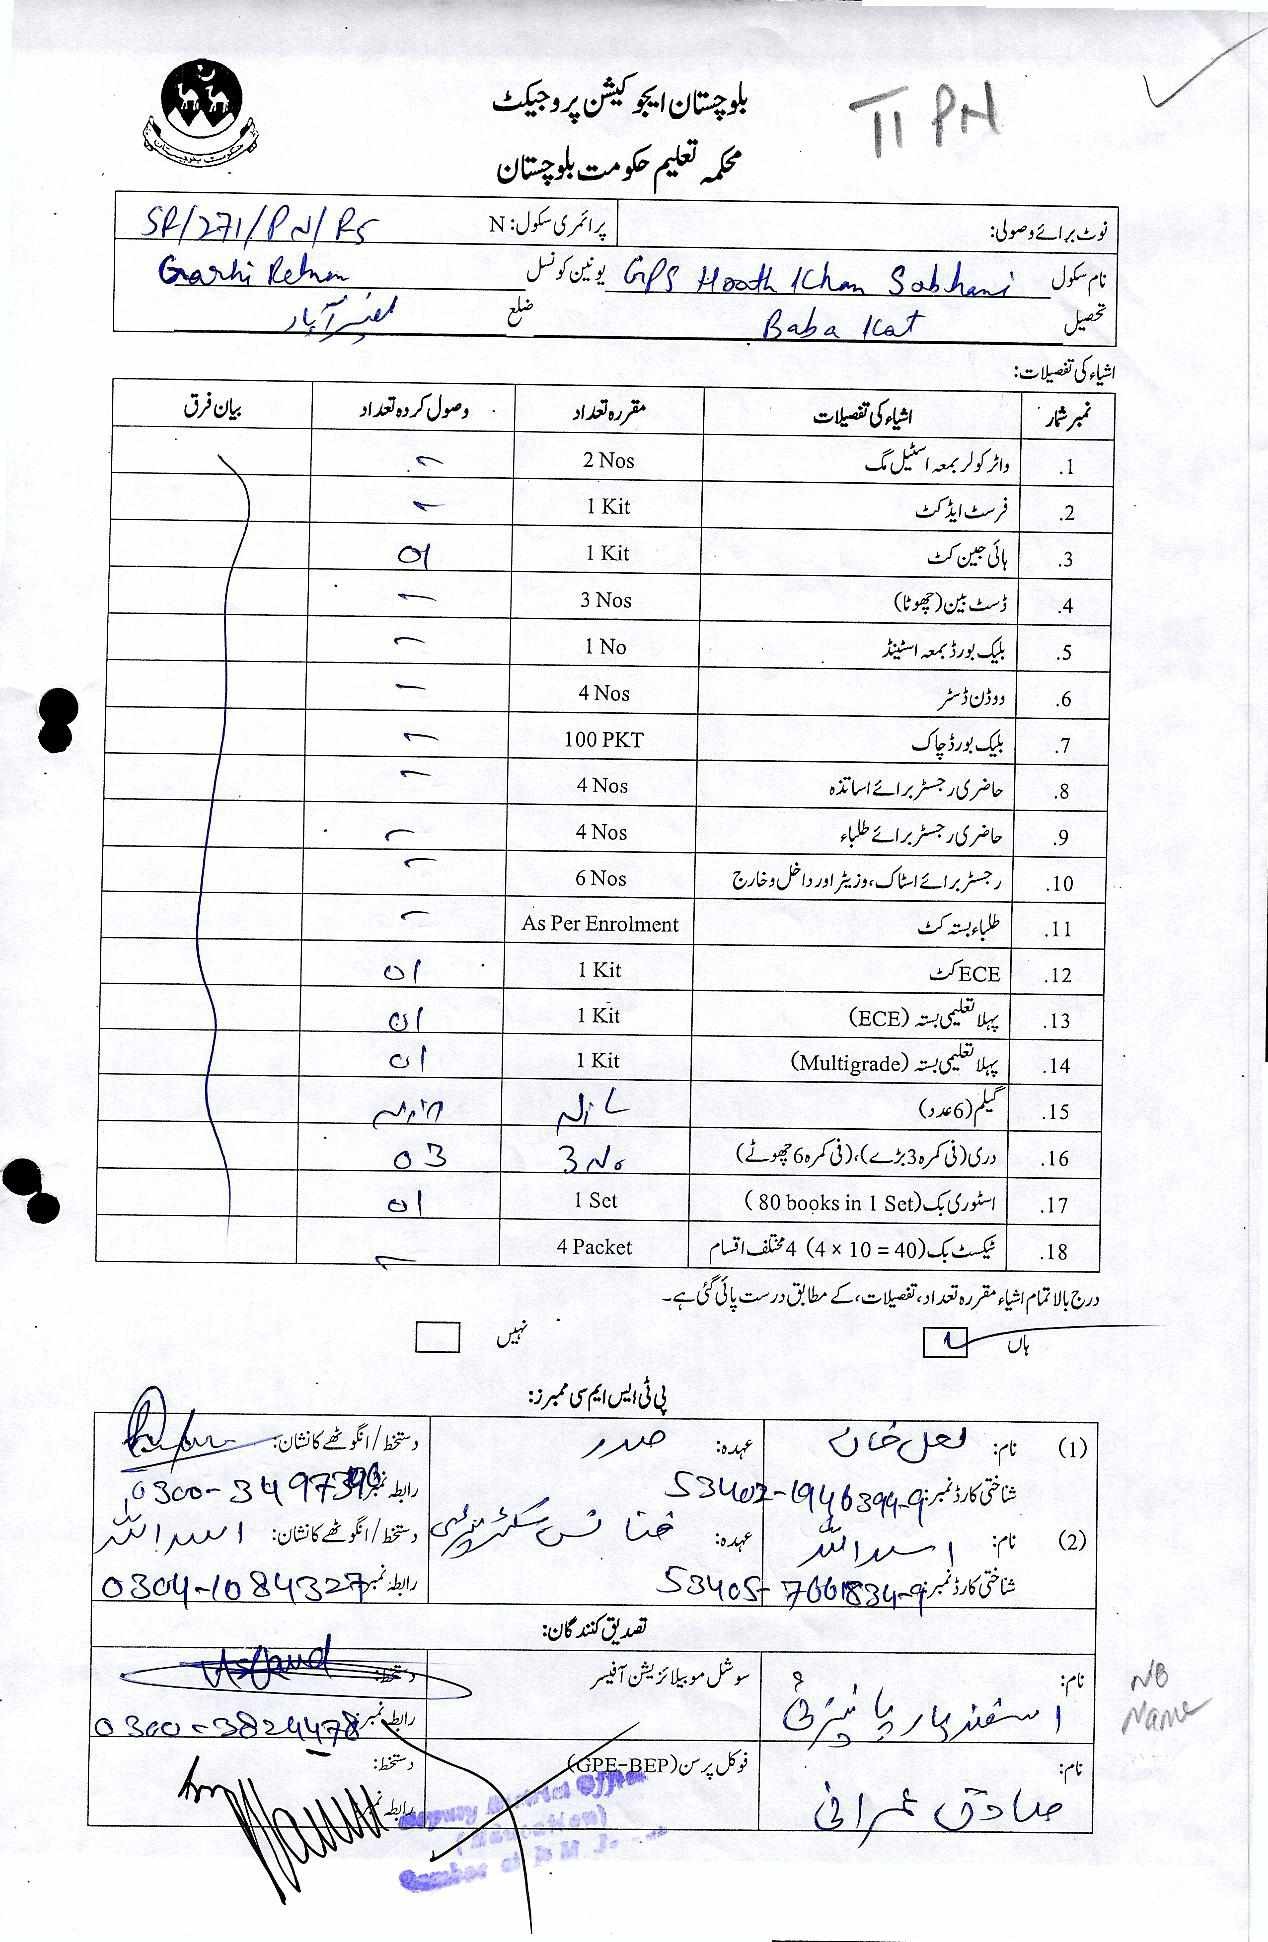 بلوچستان ایجوکیشن پروجیکٹ
محکمہ تعلیم حکومت بلوچستان
II PN
نوٹ برائے وصولی: پرائمری سکول: N SR/271/PN/RS
نام سکول GPS Hooth Khan Sobhani یونین کونسل Garhi Rehman
تحصیل Baba Kot ضلع نصیر آباد
اشیاء کی تفصیلات:
نمبر شمار اشیاء کی تفصیلات مقررہ تعداد وصول کردہ تعداد بیان فرق
1. واٹر کولر بمعہ اسٹیل مگ 2 Nos -
2. فرسٹ ایڈ کٹ 1 Kit -
3. ہائی جین کٹ 1 Kit 01
4. ڈسٹ بین (چھوٹا) 3 Nos -
5. بلیک بورڈ بمعہ اسٹینڈ 1 No -
6. ووڈن ڈسٹر 4 Nos -
7. بلیک بورڈ چاک 100 PKT -
8. حاضری رجسٹر برائے اساتذہ 4 Nos -
9. حاضری رجسٹر برائے طلباء 4 Nos -
10. رجسٹر برائے اسٹاک، وزیٹر اور داخل و خارج 6 Nos -
11. طلباء بستہ کٹ As Per Enrolment -
12. ECE کٹ 1 Kit 01
13. پہلا تعلیمی بستہ (ECE) 1 Kit 01
14. پہلا تعلیمی بستہ (Multigrade) 1 Kit 01
15. گیلم (6 عدد) Nil
16. دری (فی کمرہ 3 بڑے)، (فی کمرہ 6 چھوٹے) 3 No 03
17. اسٹوری بک (80 books in 1 Set) 1 Set 01
18. ٹیکسٹ بک (4 × 10 = 40) 4 مختلف اقسام 4 Packet -
درج بالا تمام اشیاء مقررہ تعداد، تفصیلات، کے مطابق درست پائی گئی ہے۔
ہاں نہیں
پی ٹی ایس ایم سی ممبرز:
(1) نام: لعل خان عہدہ: صدر دستخط / انگوٹھے کا نشان:
شناختی کارڈ نمبر: 53402-1946394-9 رابطہ نمبر:
(2) نام: اسد اللہ عہدہ: فنانس سیکریٹری دستخط / انگوٹھے کا نشان: اسد اللہ
شناختی کارڈ نمبر: رابطہ نمبر: 0304-1084327
تصدیق کنندگان:
نام: اسفندیار سوشل موبیلائزیشن آفیسر دستخط: Asfand
رابطہ نمبر: 0300-3824478
NB
Name
نام: صادق عمرانی فوکل پرسن (GPE-BEP) دستخط:
رابطہ نمبر:
Deputy District Officer
(Education)